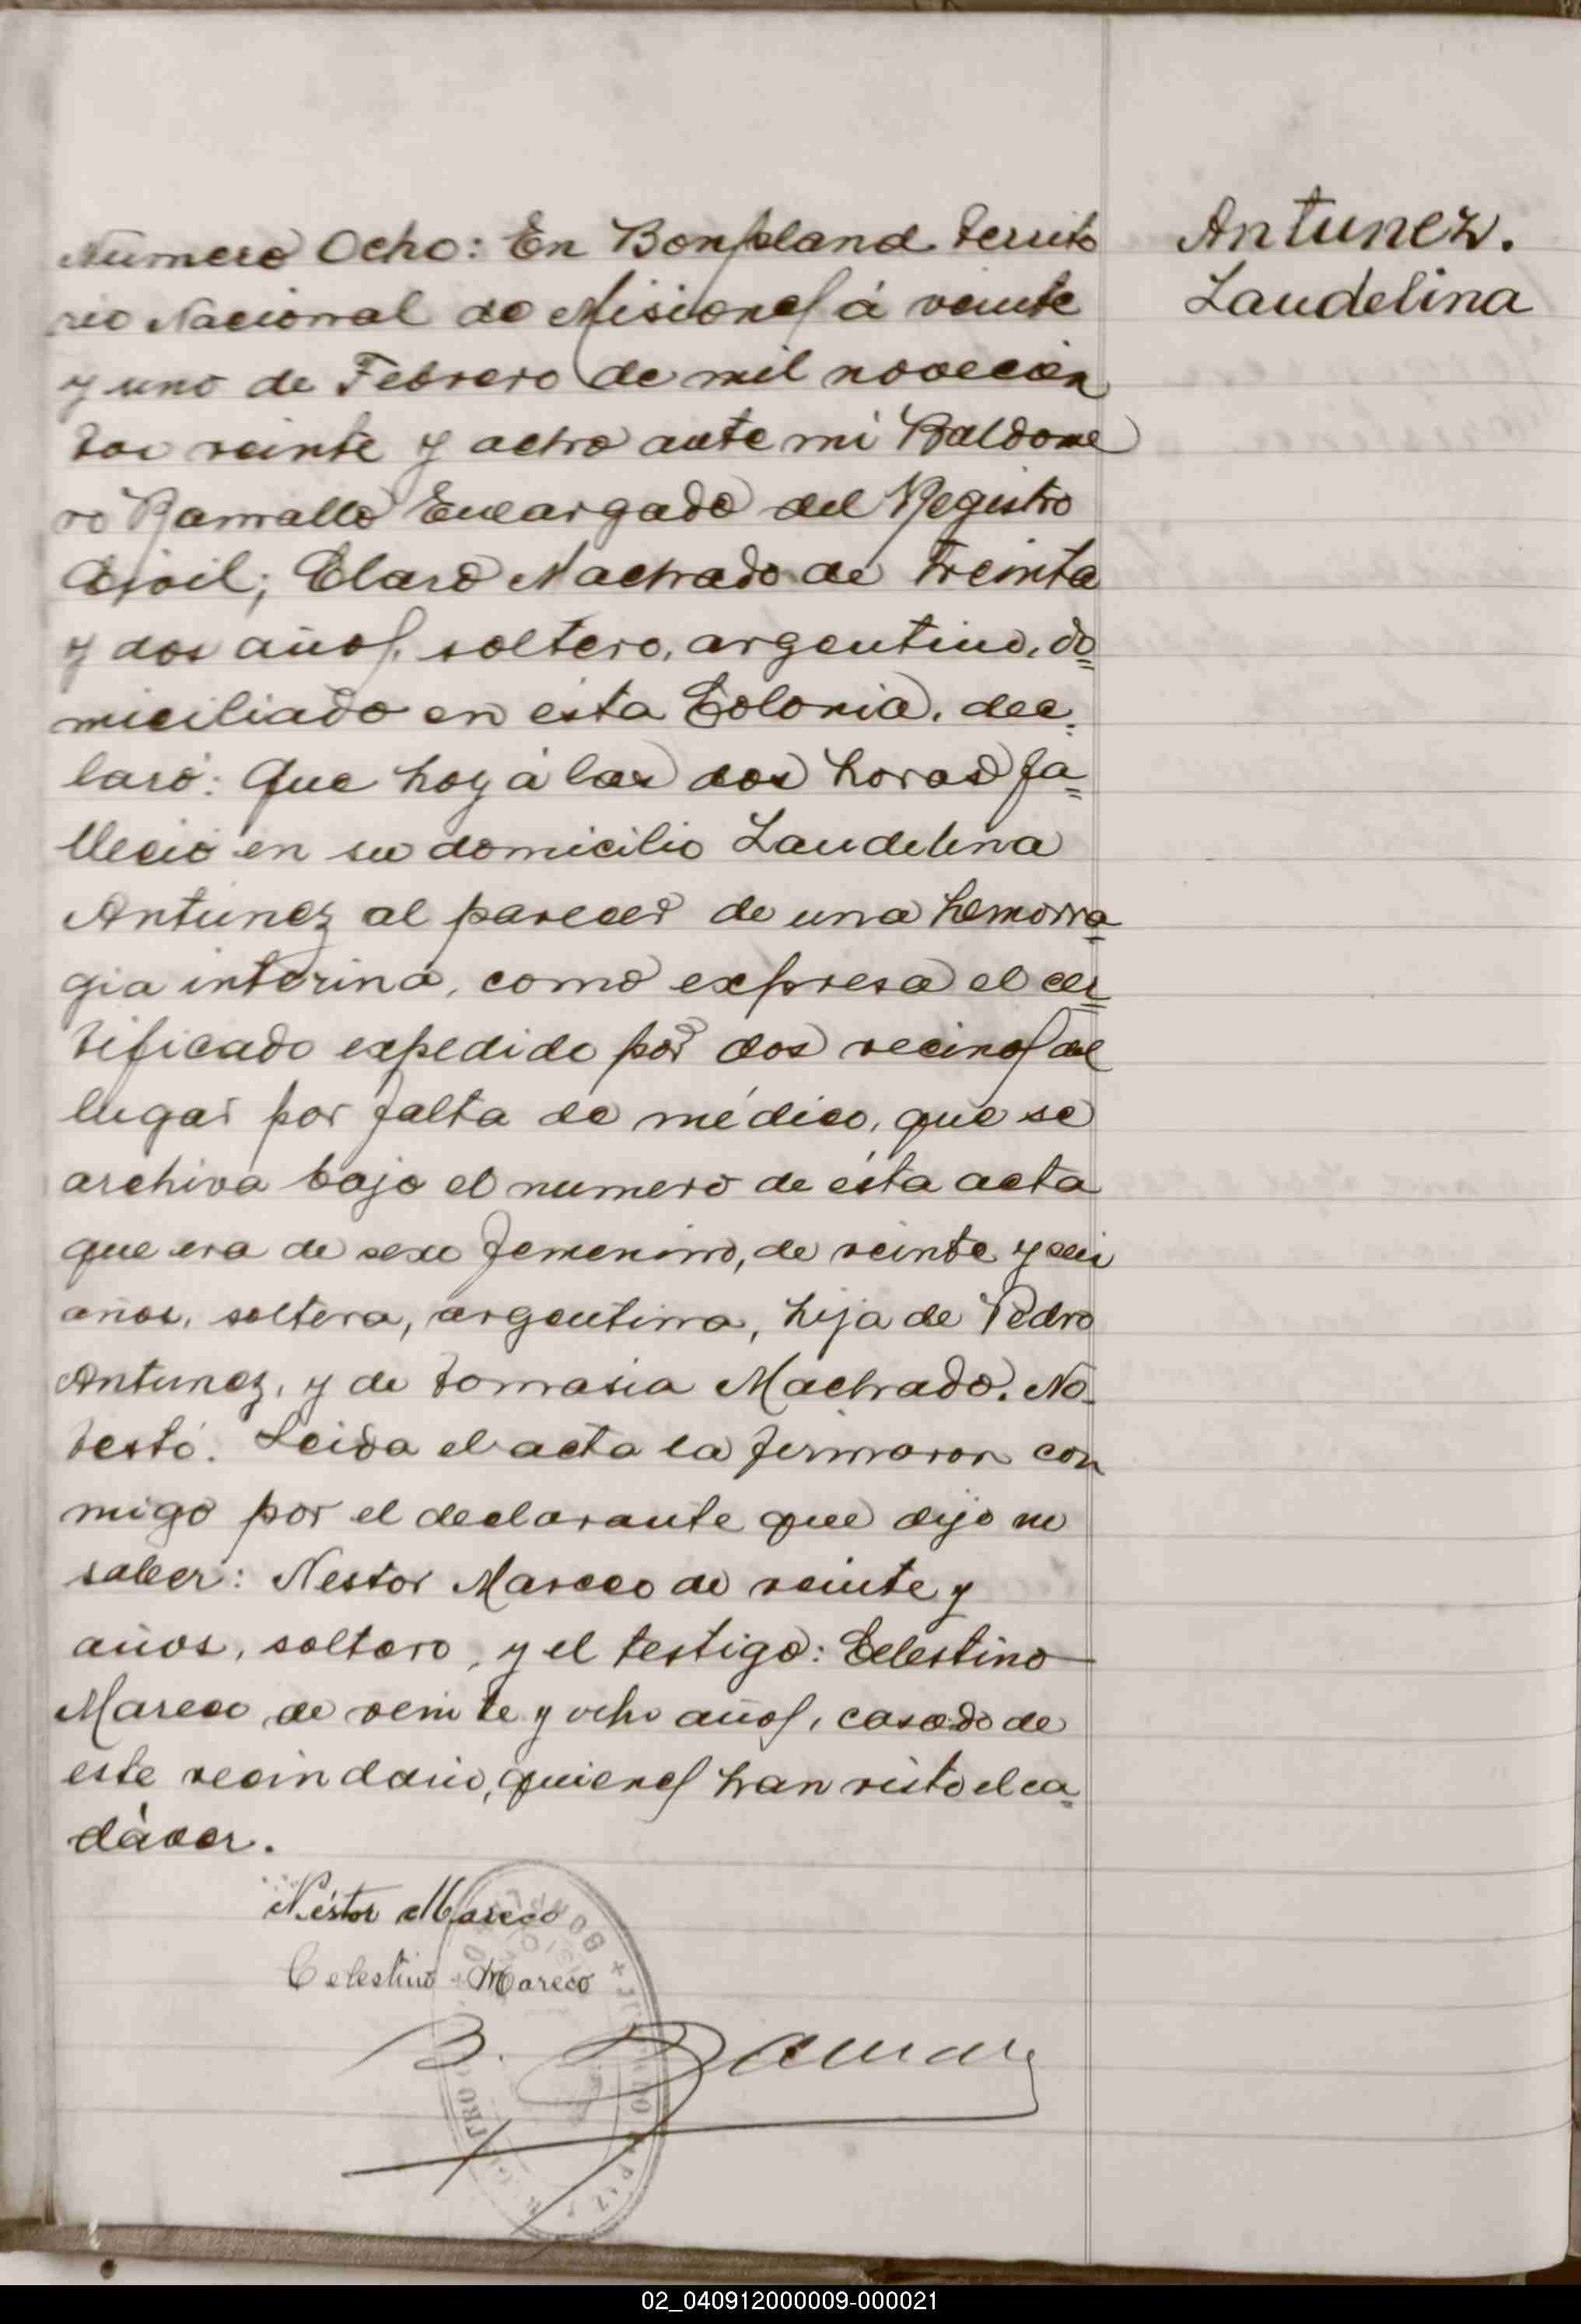 Antunez.
Laudelina
Numero Ocho: En Bonpland territo
rio Nacional de Misiones á veinte
y uno de Febrero de mil novecien
tos veinte y ocho ante mi Baldome
ro Ramallo Encargado del Registro
Civil; Claro Machado de treinta
y dos años, soltero, argentino, do=
miciliado en ésta Colonia, dec=
laró: Que hoy á las dos horas fa=
lleció en su domicilio Laudelina
Antunez al parecer de una hemorra=
gia interina, como expresa el cer=
tificado expedido por dos vecinos del
lugar por falta de médico, que se
archiva bajo el numero de ésta acta
que era de sexo femenino, de veinte y seis
años, soltera, argentina, hija de Pedro
Antunez, y de Tomasia Machado. No-
testó. Leida el acta la firmaron con
migo por el declarante que dijo no
saber: Nestor Mareco de veinte y
años, soltero, y el testigo: Celestino
Mareco de veinte y ocho años, casado de
este vecindario, quienes han visto el ca=
dáver.
Néstor Mareco
Celestino Mareco
B.
02_040912000009-000021